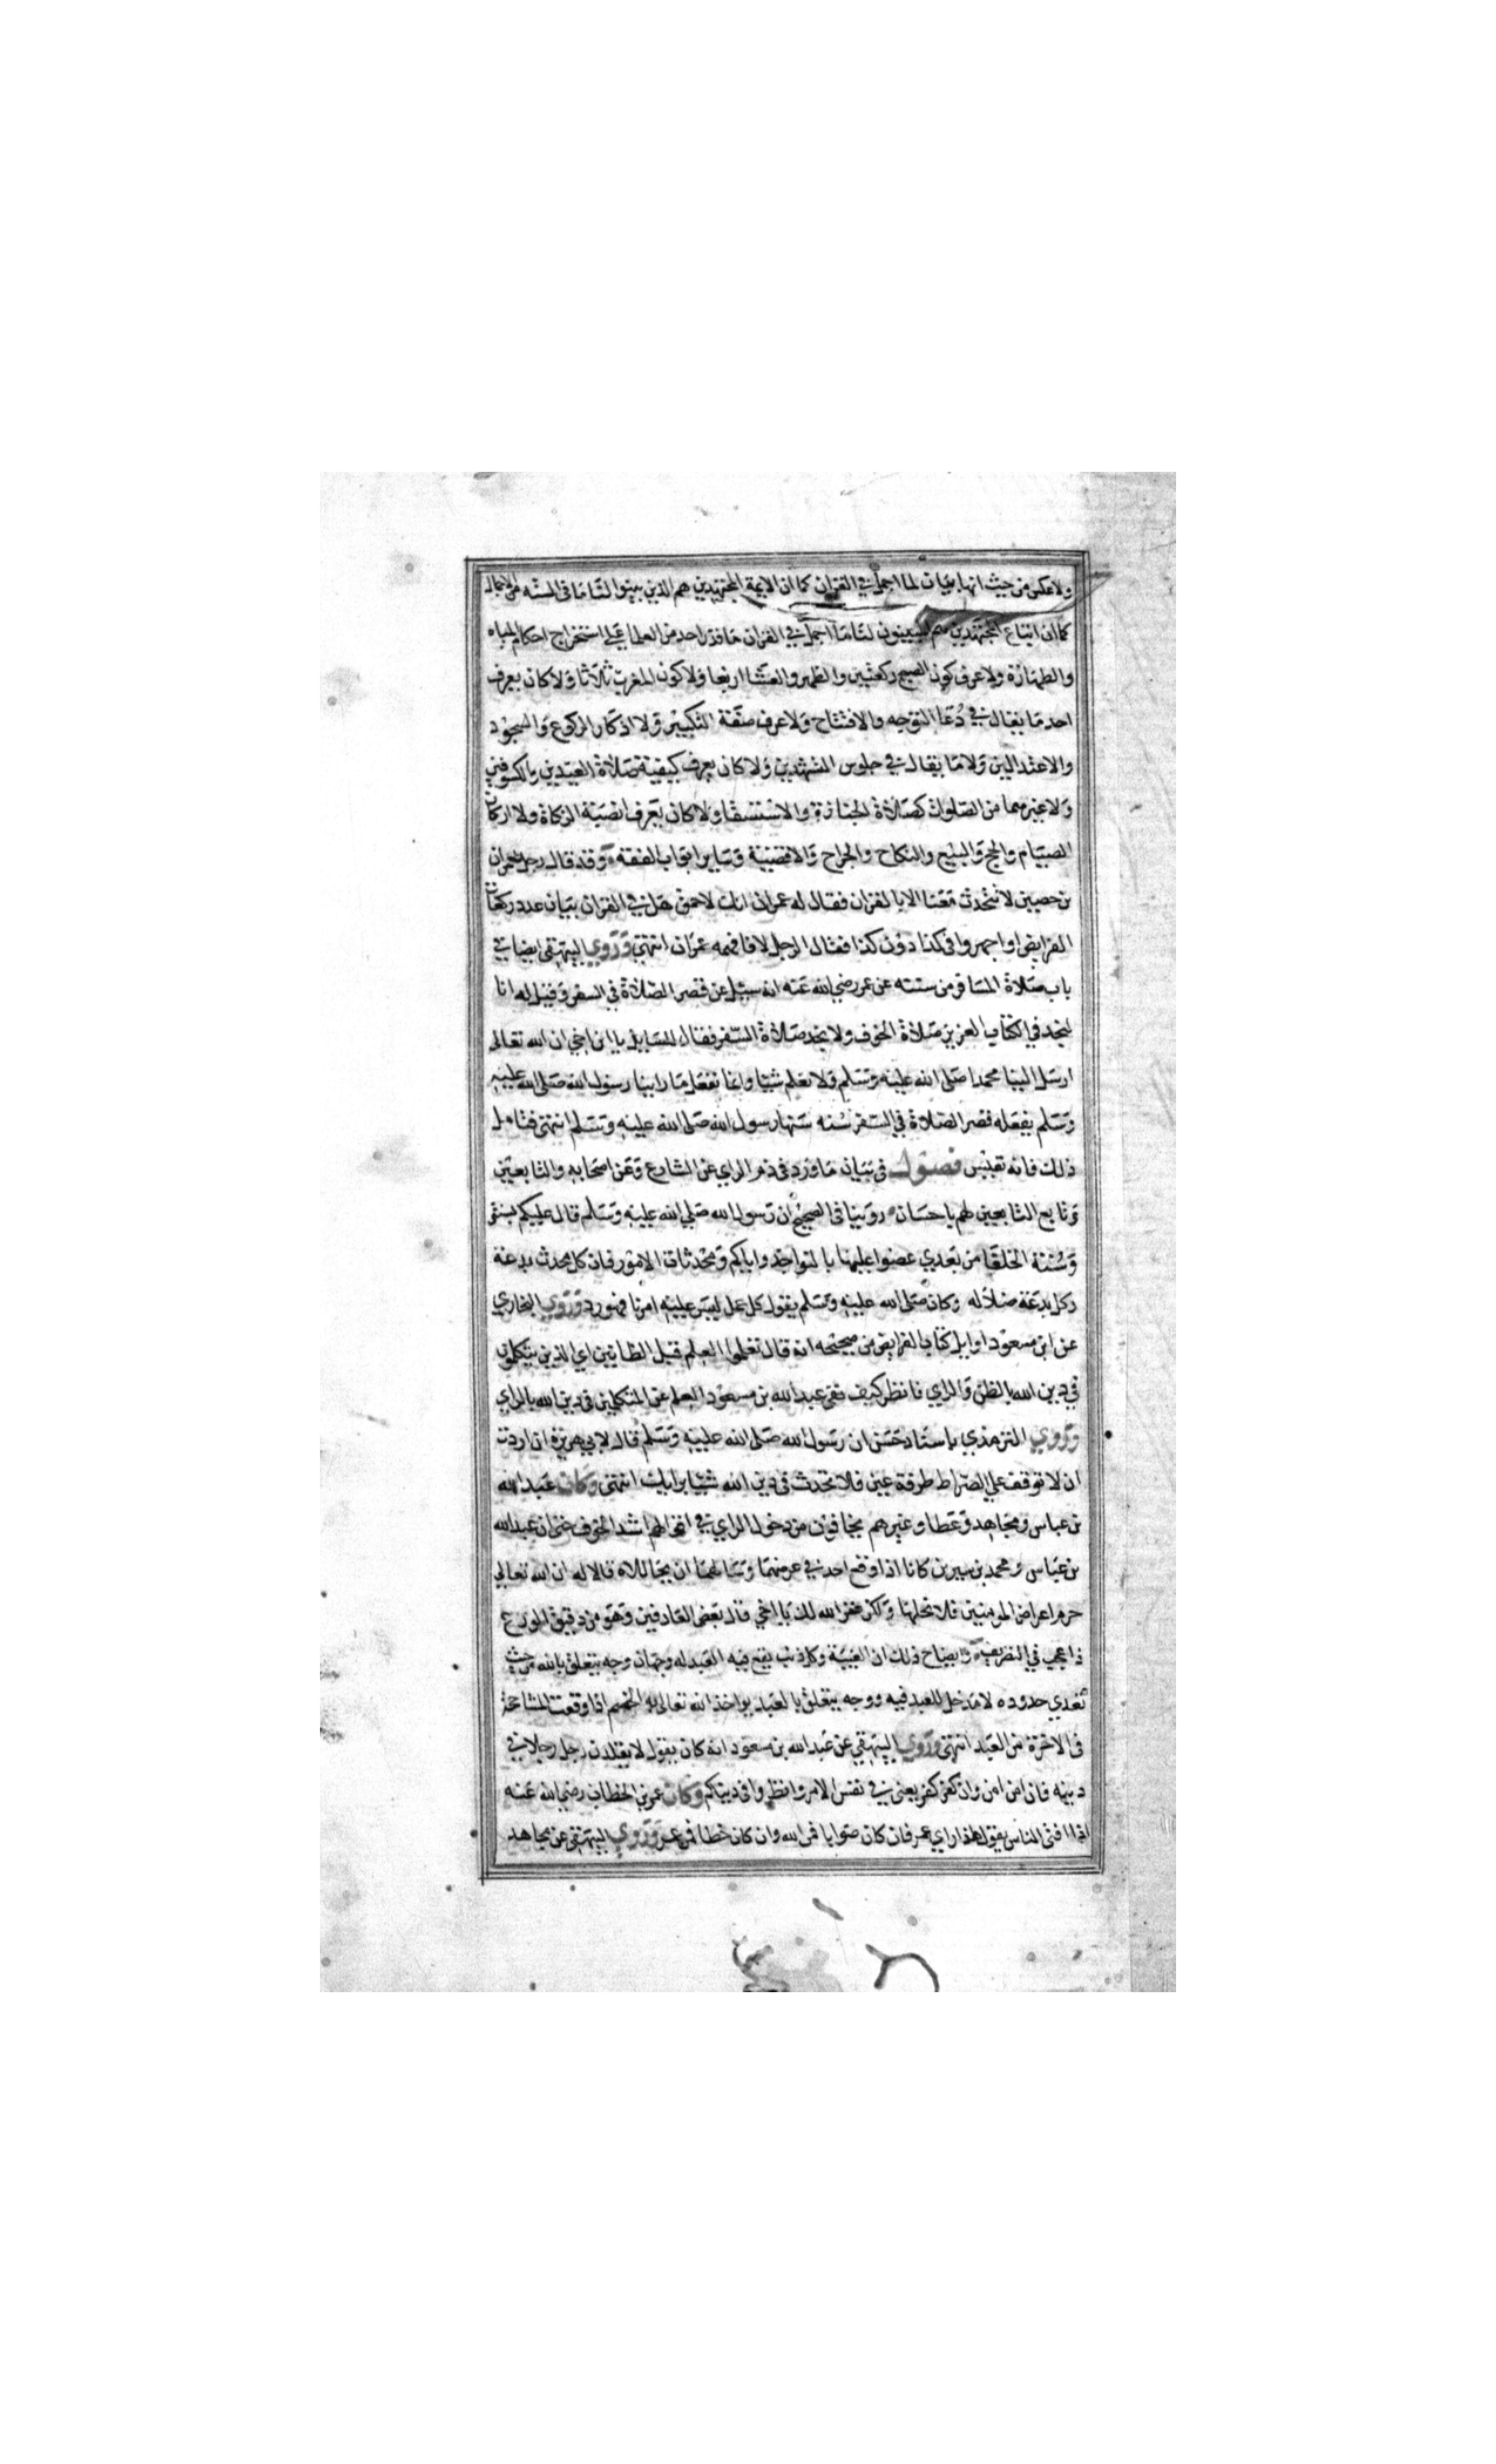 ولا عكس من حيث انها بيان لما اجمل في القران كما ان الايمة المجتهدين هم الذين بينوا لنا ما في السنه من الاجمال
كما ان اتباع المجتهدين هم المبينون لنا ما اجمل في القران ما قدر احد من العلما على استخراج احكام المياه
والطهارة ولا عرف كون الصبح ركعتين والظهر والعشا اربعا ولا كون المغرب ثلاثا ولا كان يعرف
احد ما يقال في دعا التوجه والافتتاح ولا عرف صفة التكبير ولا اذكار الركوع والسجود
والاعتدالين ولا ما يقال في جلوس التشهدين ولا كان يعرف كيفية صلاة العيدين والكسوفين
ولا غيرهما من الصلوات كصلاة الجنازة والاستسقا ولا كان يعرف انصبة الزكاة ولا اركان
الصيام والحج والبيع والنكاح والجراح والاقضية وساير ابواب الفقه وقد قال رجل لعمران
بن حصين لا تتحدث معنا الا بالقران فقال له عمران انك لاحمق هل في القران بيان عدد ركعات
الفرايض او اجهروا في كذا دون كذا فقال الرجل لا فافحمه عمران انتهى وروي البيهقي ايضا في
باب صلاة المسافر من سننه عن عمر رضي الله عنه انه سيل عن قصر الصلاة في السفر وقيل له انا
لنجد في الكتاب العزيز صلاة الخوف ولا نجد صلاة السفر فقال للسايل يا ابن اخي ان الله تعالى
ارسل الينا محمدا صلى الله عليه وسلم ولا نعلم شيا وانما نفعل ما راينا رسول الله صلى الله عليه
وسلم يفعله قصر الصلاة في السفر سنه سنها رسول الله صلى الله عليه وسلم انتهى فتامل
ذلك فانه نفيس فصول في بيان ما ورد في ذم الراي عن الشارع وعن اصحابه والتابعين
وتابع التابعين لهم باحسان روينا في الصحيح ان رسول الله صلي الله عليه وسلم قال عليكم بسنتى
وسنة الخلفا من بعدي عضوا عليها بالنواجد واياكم ومحدثات الامور فان كل محدث بدعة
وكل بدعة ضلاله وكان صلى الله عليه وسلم يقول كل عمل ليس عليه امرنا فهو رد وروي البخاري
عن ابن مسعود اوايل كتاب الفرايض من صحيحه انه قال تعلموا العلم قبل الظانين اي الذين يتكلمون
في دين الله بالظن والراي فانظر كيف نفى عبد الله بن مسعود العلم عن المتكلمين في دين الله بالراي
وروي الترمذي باسناد حسن ان رسول الله صلى الله عليه وسلم قال لابي هريرة ان اردت
ان لا توقف علي الصراط طرفة عين فلا تحدث في دين الله شيا برايك انتهى وكان عبد الله
بن عباس ومجاهد وعطا وغيرهم يخافون من دخول الراي في اقوالهم اشد الخوف حتى ان عبد الله
بن عباس ومحمد بن سيرين كانا اذا وقع احد في عرضهما وسالهما ان يحاللاه قالا له ان الله تعالي
حرم اعراض المومنين فلا نحلها ولكن غفر الله لك يا اخي قال بعض العارفين وهو من دقيق الورع
وايضاح ذلك ان الغيبة وكل ذنب يقع فيه العبد له وجهان وجه يتعلق بالله من حيث
تعدي حدوده لا مدخل للعبد فيه ووجه يتعلق بالعبد يواخذ الله تعالى به الخصم اذا وقعت المشاححة
في الاخرة من العبد انتهى وروي البيهقي عن عبد الله بن مسعود انه كان يقول لا يقلدن رجل رجلا في
دينه فان امن امن وان كفر كفر يعنى في نفس الامر وانظروا في دينكم وكان عمر بن الخطاب رضي الله عنه
اذا افتى الناس يقول هذا راي عمر فان كان صوابا فمن الله وان كان خطا فمن عمر وروي البيهقى عن مجاهد